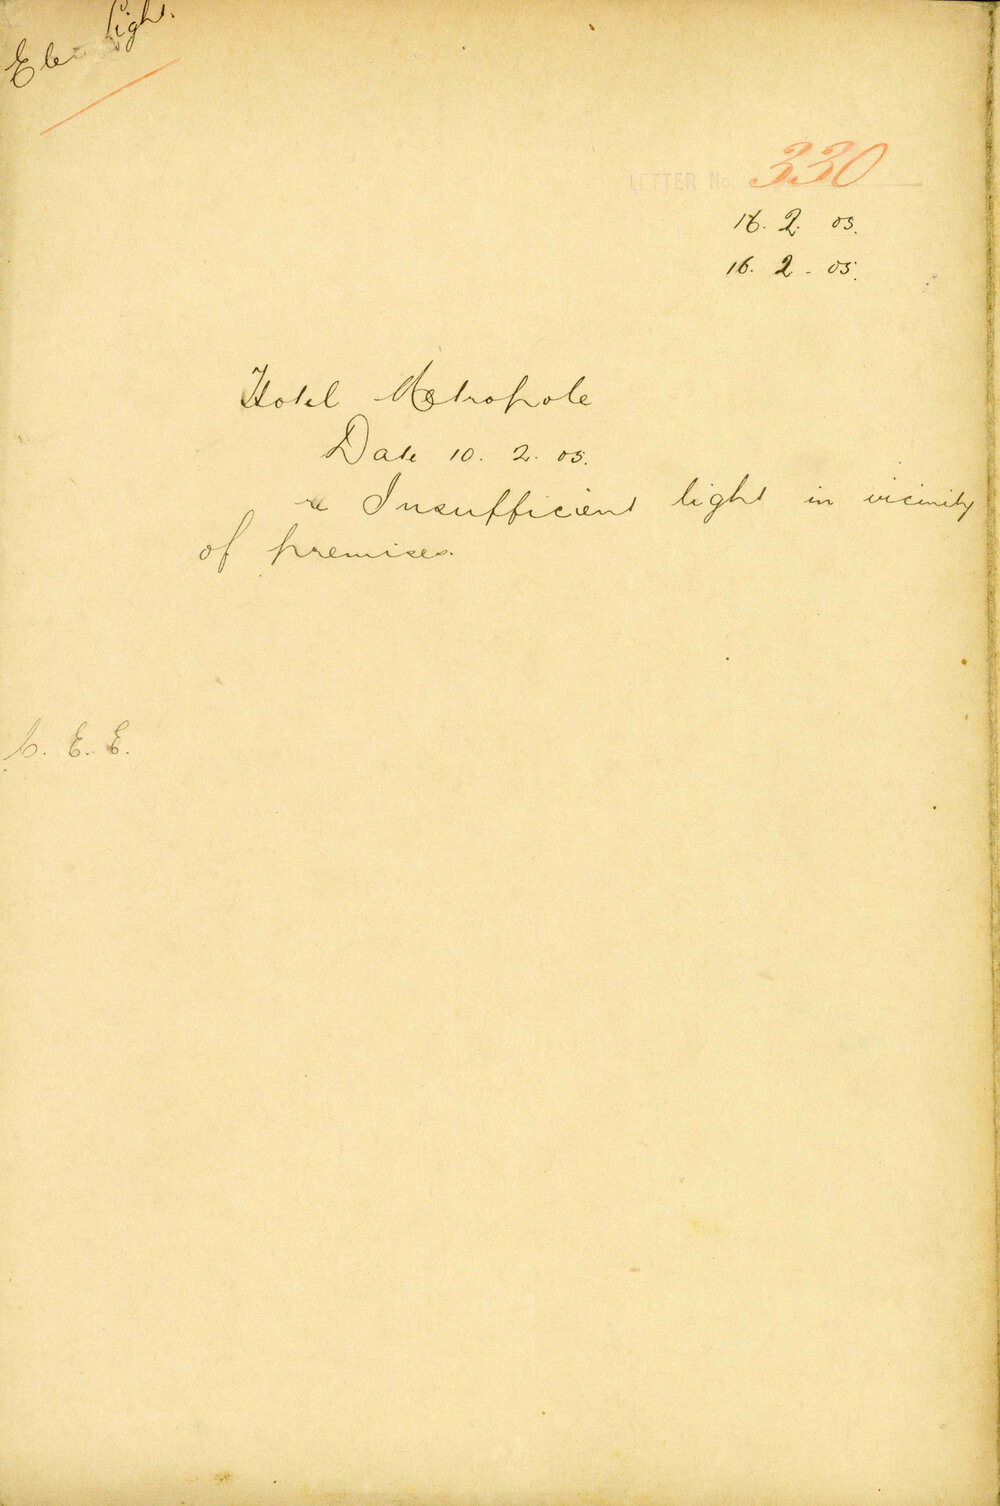 Elec Light.
LETTER No. 330
16. 2. 05.
16. 2 - 05.
Hotel Metropole
Date 10. 2. 05.
re Insufficient light in vicinity
of premises.
C. E. E.